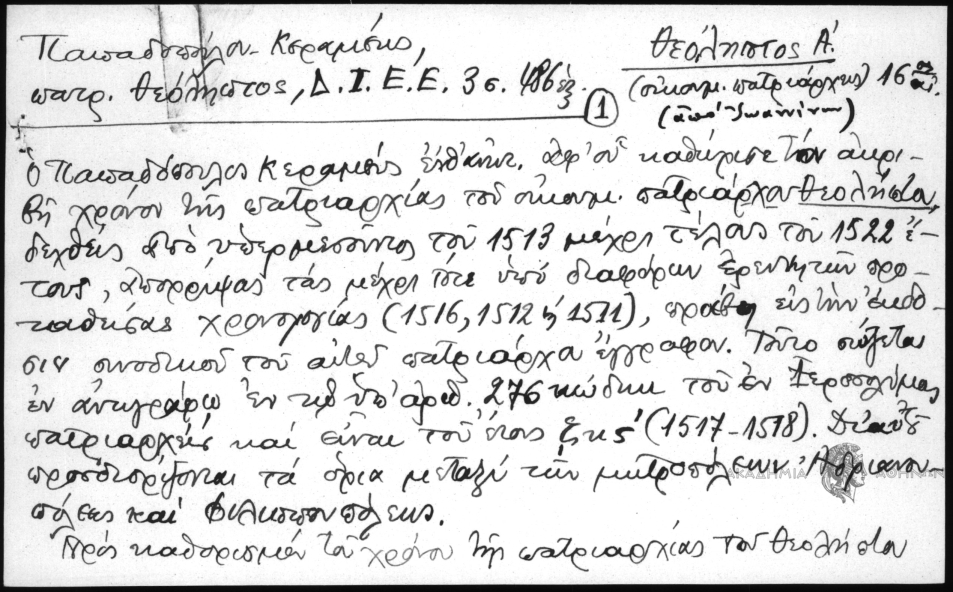 Παπαδοπούλου-Κεραμέως,
πατρ. Θεόληπτος, Δ.Ι.Ε.Ε. 3 σ. 486 ἑξ.
Θεόληπτος Α΄.
(οἰκουμ. πατριάρχης) 16ος αἰ.
(ἀπό Ἰωαννίνων)
1
Ὁ Παπαδόπουλος Κεραμεύς ἐνθ' ἀνωτ. ἀφ' οὗ καθώρισε τὸν ἀκρι-
βῆ χρόνον τῆς πατριαρχίας τοῦ οἰκουμ. πατριάρχου Θεολήπτου,
δεχθείς ἀπό μεσοῦντος τοῦ 1513 μέχρι τέλους τοῦ 1522 ἔ-
τους, ἀπορρίψας τάς μέχρι τότε ὑπό διαφόρων ἐρευνητῶν προ-
ταθείσας χρονολογίας (1516, 1512 ἤ 1511), προέβη εἰς τήν ἔκδο-
σιν συνοδικοῦ τοῦ αὐτοῦ πατριάρχου ἐγγράφου. Τοῦτο σώζεται
ἐν ἀντιγράφῳ ἐν τῷ ὑπ' ἀριθ. 276 κώδικι τοῦ ἐν Ἱεροσολύμοις
πατριαρχείου καί εἶναι τοῦ ἔτους ζκς΄ (1517-1518). Δι' αὐτοῦ
προσδιορίζονται τά ὅρια μεταξύ τῶν μητροπόλεων Ἀδριανου-
πόλεως καί Φιλιππουπόλεως.
Πρός καθορισμόν τοῦ χρόνου τῆς πατριαρχίας τοῦ Θεολήπτου
ΑΚΑΔΗΜΙΑ ΑΘΗΝΩΝ